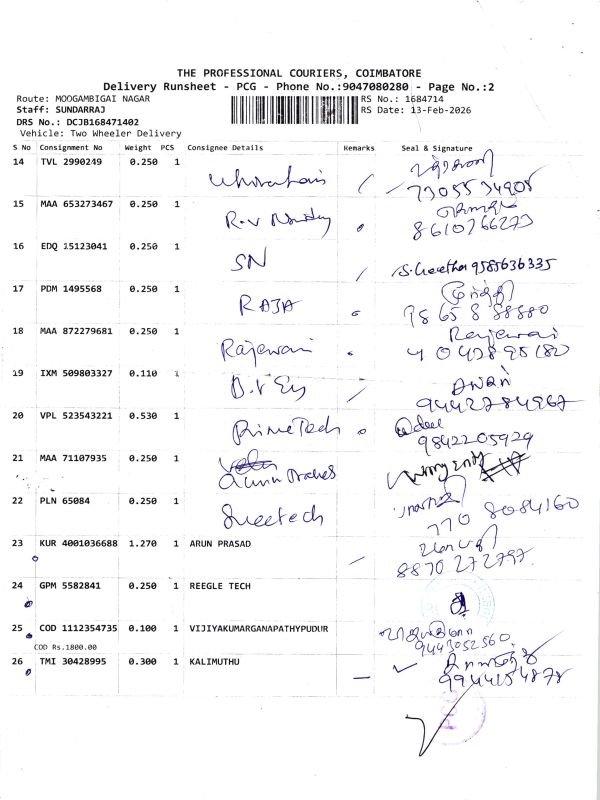 THE PROFESSIONAL COURIERS, COIMBATORE
Delivery Runsheet - PCG - Phone No.:9047080280 - Page No.:2
Route: MOOGAMBIGAI NAGAR RS No.: 1684714
Staff: SUNDARRAJ RS Date: 13-Feb-2026
DRS No.: DCJB168471402
Vehicle: Two Wheeler Delivery
S No Consignment No Weight PCS Consignee Details Remarks Seal & Signature
14 TVL 2990249 0.250 1
7305534908
15 MAA 653273467 0.250 1 R.V
8610766273
16 EDQ 15123041 0.250 1 SN
9585636335
17 PDM 1495568 0.250 1 RAJA
98658 88880
18 MAA 872279681 0.250 1 Rajeswari Rajeswari
19 IXM 509803327 0.110 1
9442784967
20 VPL 523543221 0.530 1 PrimeTech
9842205929
21 MAA 71107935 0.250 1
22 PLN 65084 0.250 1 Sreetech
770 8084160
23 KUR 4001036688 1.270 1 ARUN PRASAD
8870272797
24 GPM 5582841 0.250 1 REEGLE TECH
25 COD 1112354735 0.100 1 VIJIYAKUMARGANAPATHYPUDUR
9443052560
COD Rs.1800.00
26 TMI 30428995 0.300 1 KALIMUTHU
9944154878